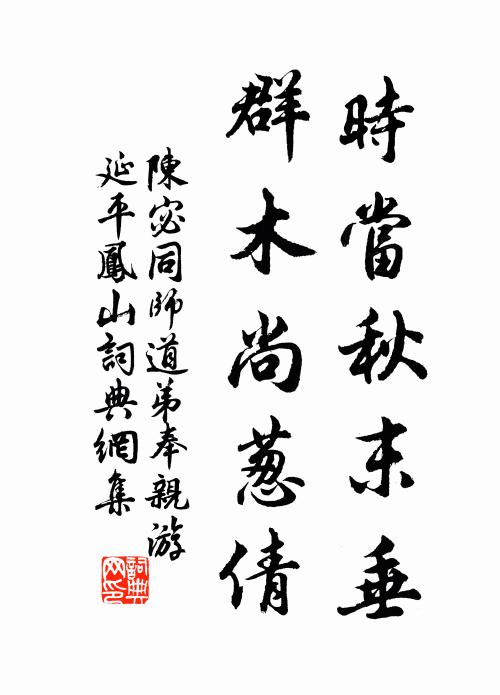 時當秋末垂
群木尚蔥倩
陳宓同師道弟奉親游
延平鳳山詞典網集
詞典網印